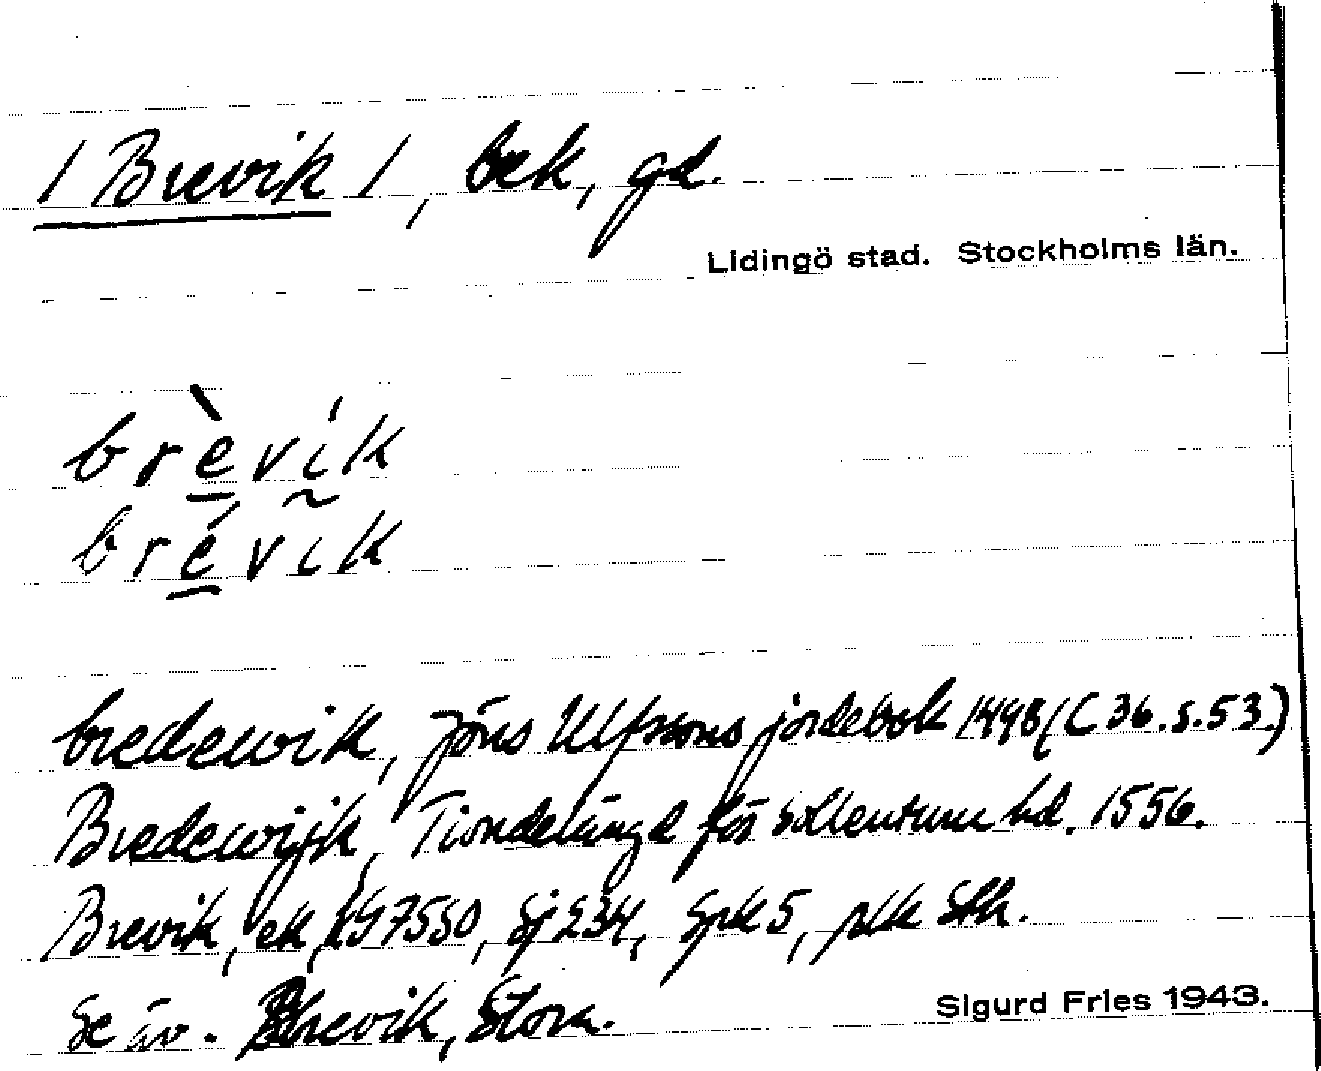 / Brevik /, bek, gd.
Lidingö stad. Stockholms län.
brèvík
brévĩk
bredewik, Jöns Ulfssons jordebok 1498 (C 36. s. 53.)
Bredewijk, Tiondelängd för Sollentuna hd. 1556.
Brevik, ek, Sj 234, Spk 5, plk Sth.
Se äv. Brevik, Stora.
Sigurd Fries 1943.